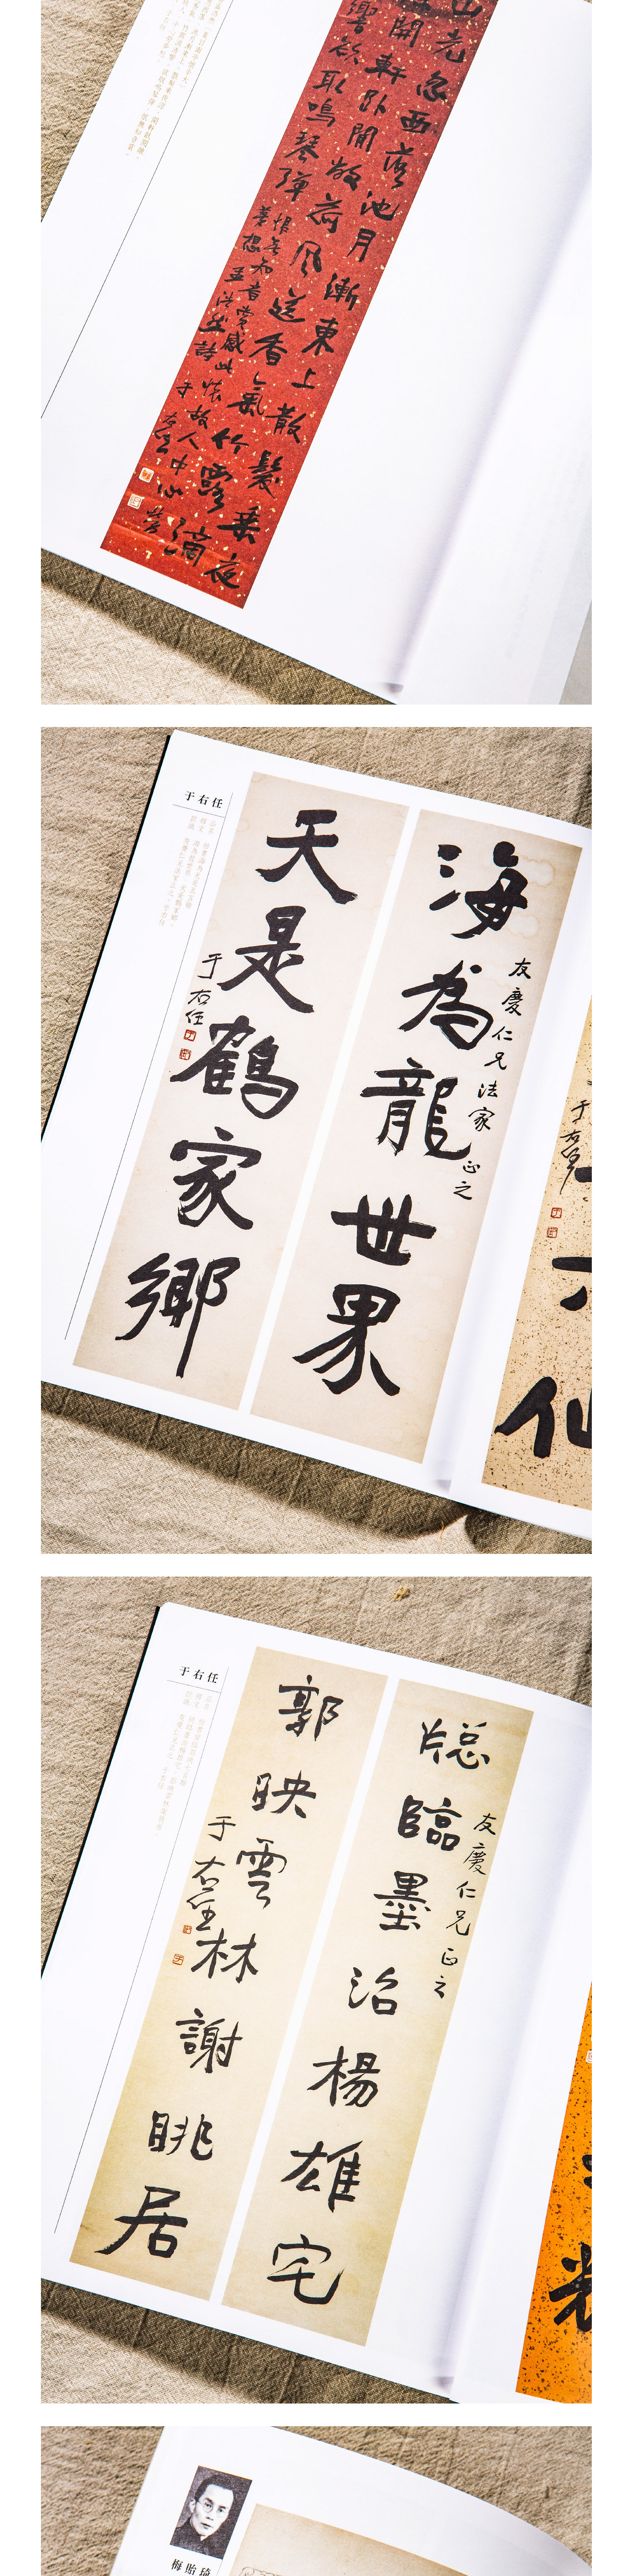 山光忽西落池月漸東上散髮乘夜
開軒臥閒敞荷風送香氣竹露滴
響欲取鳴琴彈恨無知音賞感此懷故人中心勞
夢想孟浩然詩
于右任
于右任
海為龍世界
友慶仁兄法家正之
天是鶴家鄉
于右任
于右任
仙
于右任
牕臨墨沼楊雄宅
友慶仁兄正之
郭映雲林謝眺居
于右任
梅貽琦